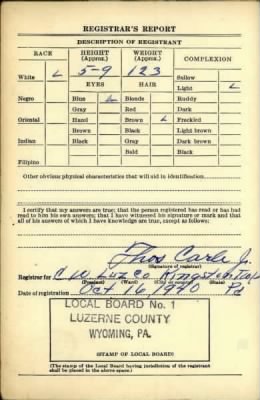 REGISTRAR'S REPORT
DESCRIPTION OF REGISTRANT
RACE HEIGHT (Approx.) WEIGHT (Approx.) COMPLEXION
5-9 123
White Sallow
EYES HAIR Light
Negro Blue Blonde Ruddy
Gray Red Dark
Oriental Hazel Brown Freckled
Brown Black Light brown
Indian Black Gray Dark brown
Bald Black
Filipino
Other obvious physical characteristics that will aid in identification
I certify that my answers are true; that the person registered has read or has had
read to him his own answers; that I have witnessed his signature or mark and that
all of his answers of which I have knowledge are true, except as follows:
Thos
(Signature of registrar)
Registrar for Luz Co Kingston
(Precinct) (Ward) (City or county) (State)
Date of registration Oct 16 1940 Pa
LOCAL BOARD No. 1
LUZERNE COUNTY
WYOMING, PA.
(STAMP OF LOCAL BOARD)
(The stamp of the Local Board having jurisdiction of the registrant
shall be placed in the above space.)